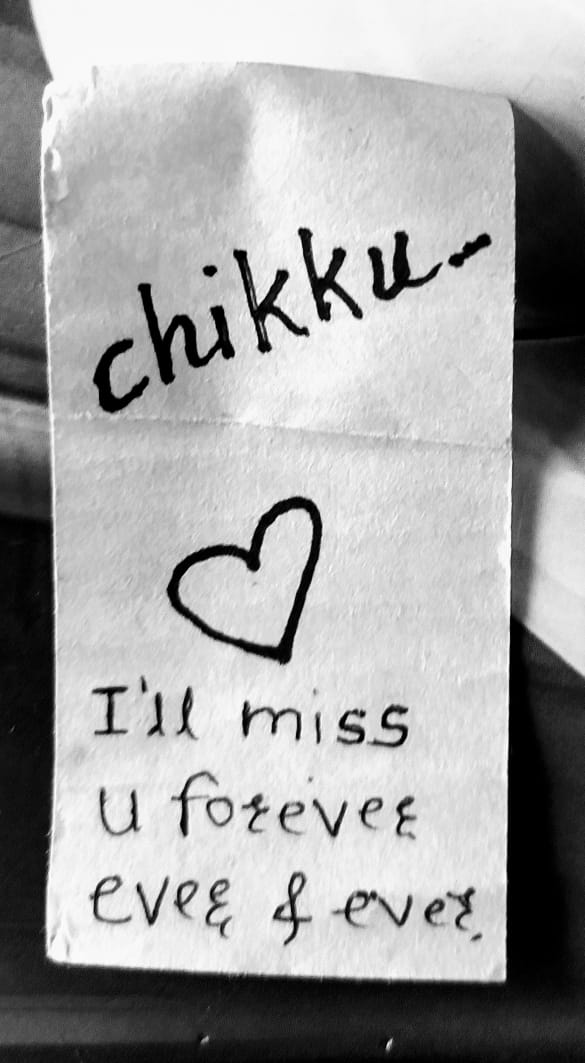 chikku-
I'll miss
u forever
ever & ever.